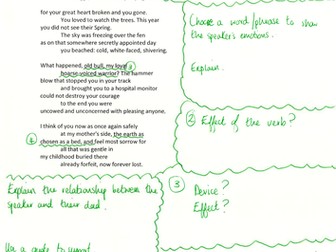 for your great heart broken and you gone.
You loved to watch the trees. This year
you did not see their Spring.
The sky was freezing over the fen
as on that somewhere secretly appointed day
you beached: cold, white-faced, shivering.
What happened, old bull, my loyal
hoarse-voiced warrior? The hammer
blow that stopped you in your track
and brought you to a hospital monitor
could not destroy your courage
to the end you were
uncowed and unconcerned with pleasing anyone.
I think of you now as once again safely
at my mother's side, the earth as
chosen as a bed, and feel most sorrow for
all that was gentle in
my childhood buried there
already forfeit, now forever lost.
Explain the relationship between the
speaker and their dad.
Choose a word/phrase to show
the speaker's emotions.
Explain.
② Effect of the verb?
③ Device?
Effect?